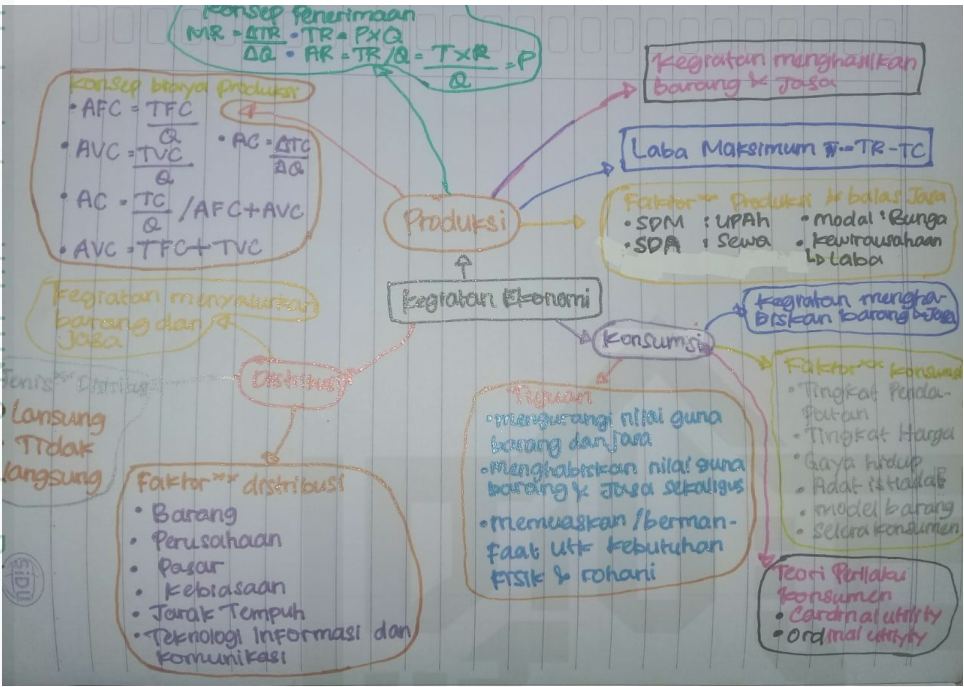 Konsep Penerimaan
MR = ΔTR/ΔQ • TR = P×Q
• AR = TR/Q = T×R/Q = P
Konsep biaya produksi
• AFC = TFC/Q
• AC = ΔTC/ΔQ
• AVC = TVC/Q
• AC = TC/Q / AFC+AVC
• AVC = TFC+TVC
Produksi
Kegiatan menghasilkan
barang & Jasa
Laba Maksimum π = TR-TC
Faktor" Produksi & balas Jasa
• SDM : UPAh
• SDA : Sewa
• modal : Bunga
• kewirausahaan
↳ Laba
Kegiatan Ekonomi
Kegiatan menyalurkan
barang dan
Jasa
Distribusi
Jenis" Distribusi
Lansung
Tidak
langsung
Faktor" distribusi
• Barang
• Perusahaan
• Pasar
• Kebiasaan
• Jarak Tempuh
• Teknologi informasi dan
komunikasi
Konsumsi
Kegiatan mengha-
biskan barang & Jasa
Tujuan
• mengurangi nilai guna
barang dan jasa
• Menghabiskan nilai guna
barang & Jasa sekaligus
• memuaskan /berman-
faat utk kebutuhan
fisik & rohani
Faktor" konsumsi
• Tingkat Penda-
patan
• Tingkat Harga
• Gaya hidup
• Adat istiadat
• model barang
• Selera konsumen
Teori Perilaku
konsumen
• Cardinal utility
• ordinal utilyty
SiDU